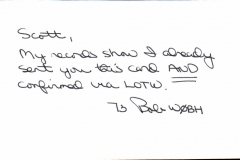 Scott,
My records show I already
sent you this card AND
confirmed via LOTW.
73 Bob WØBH